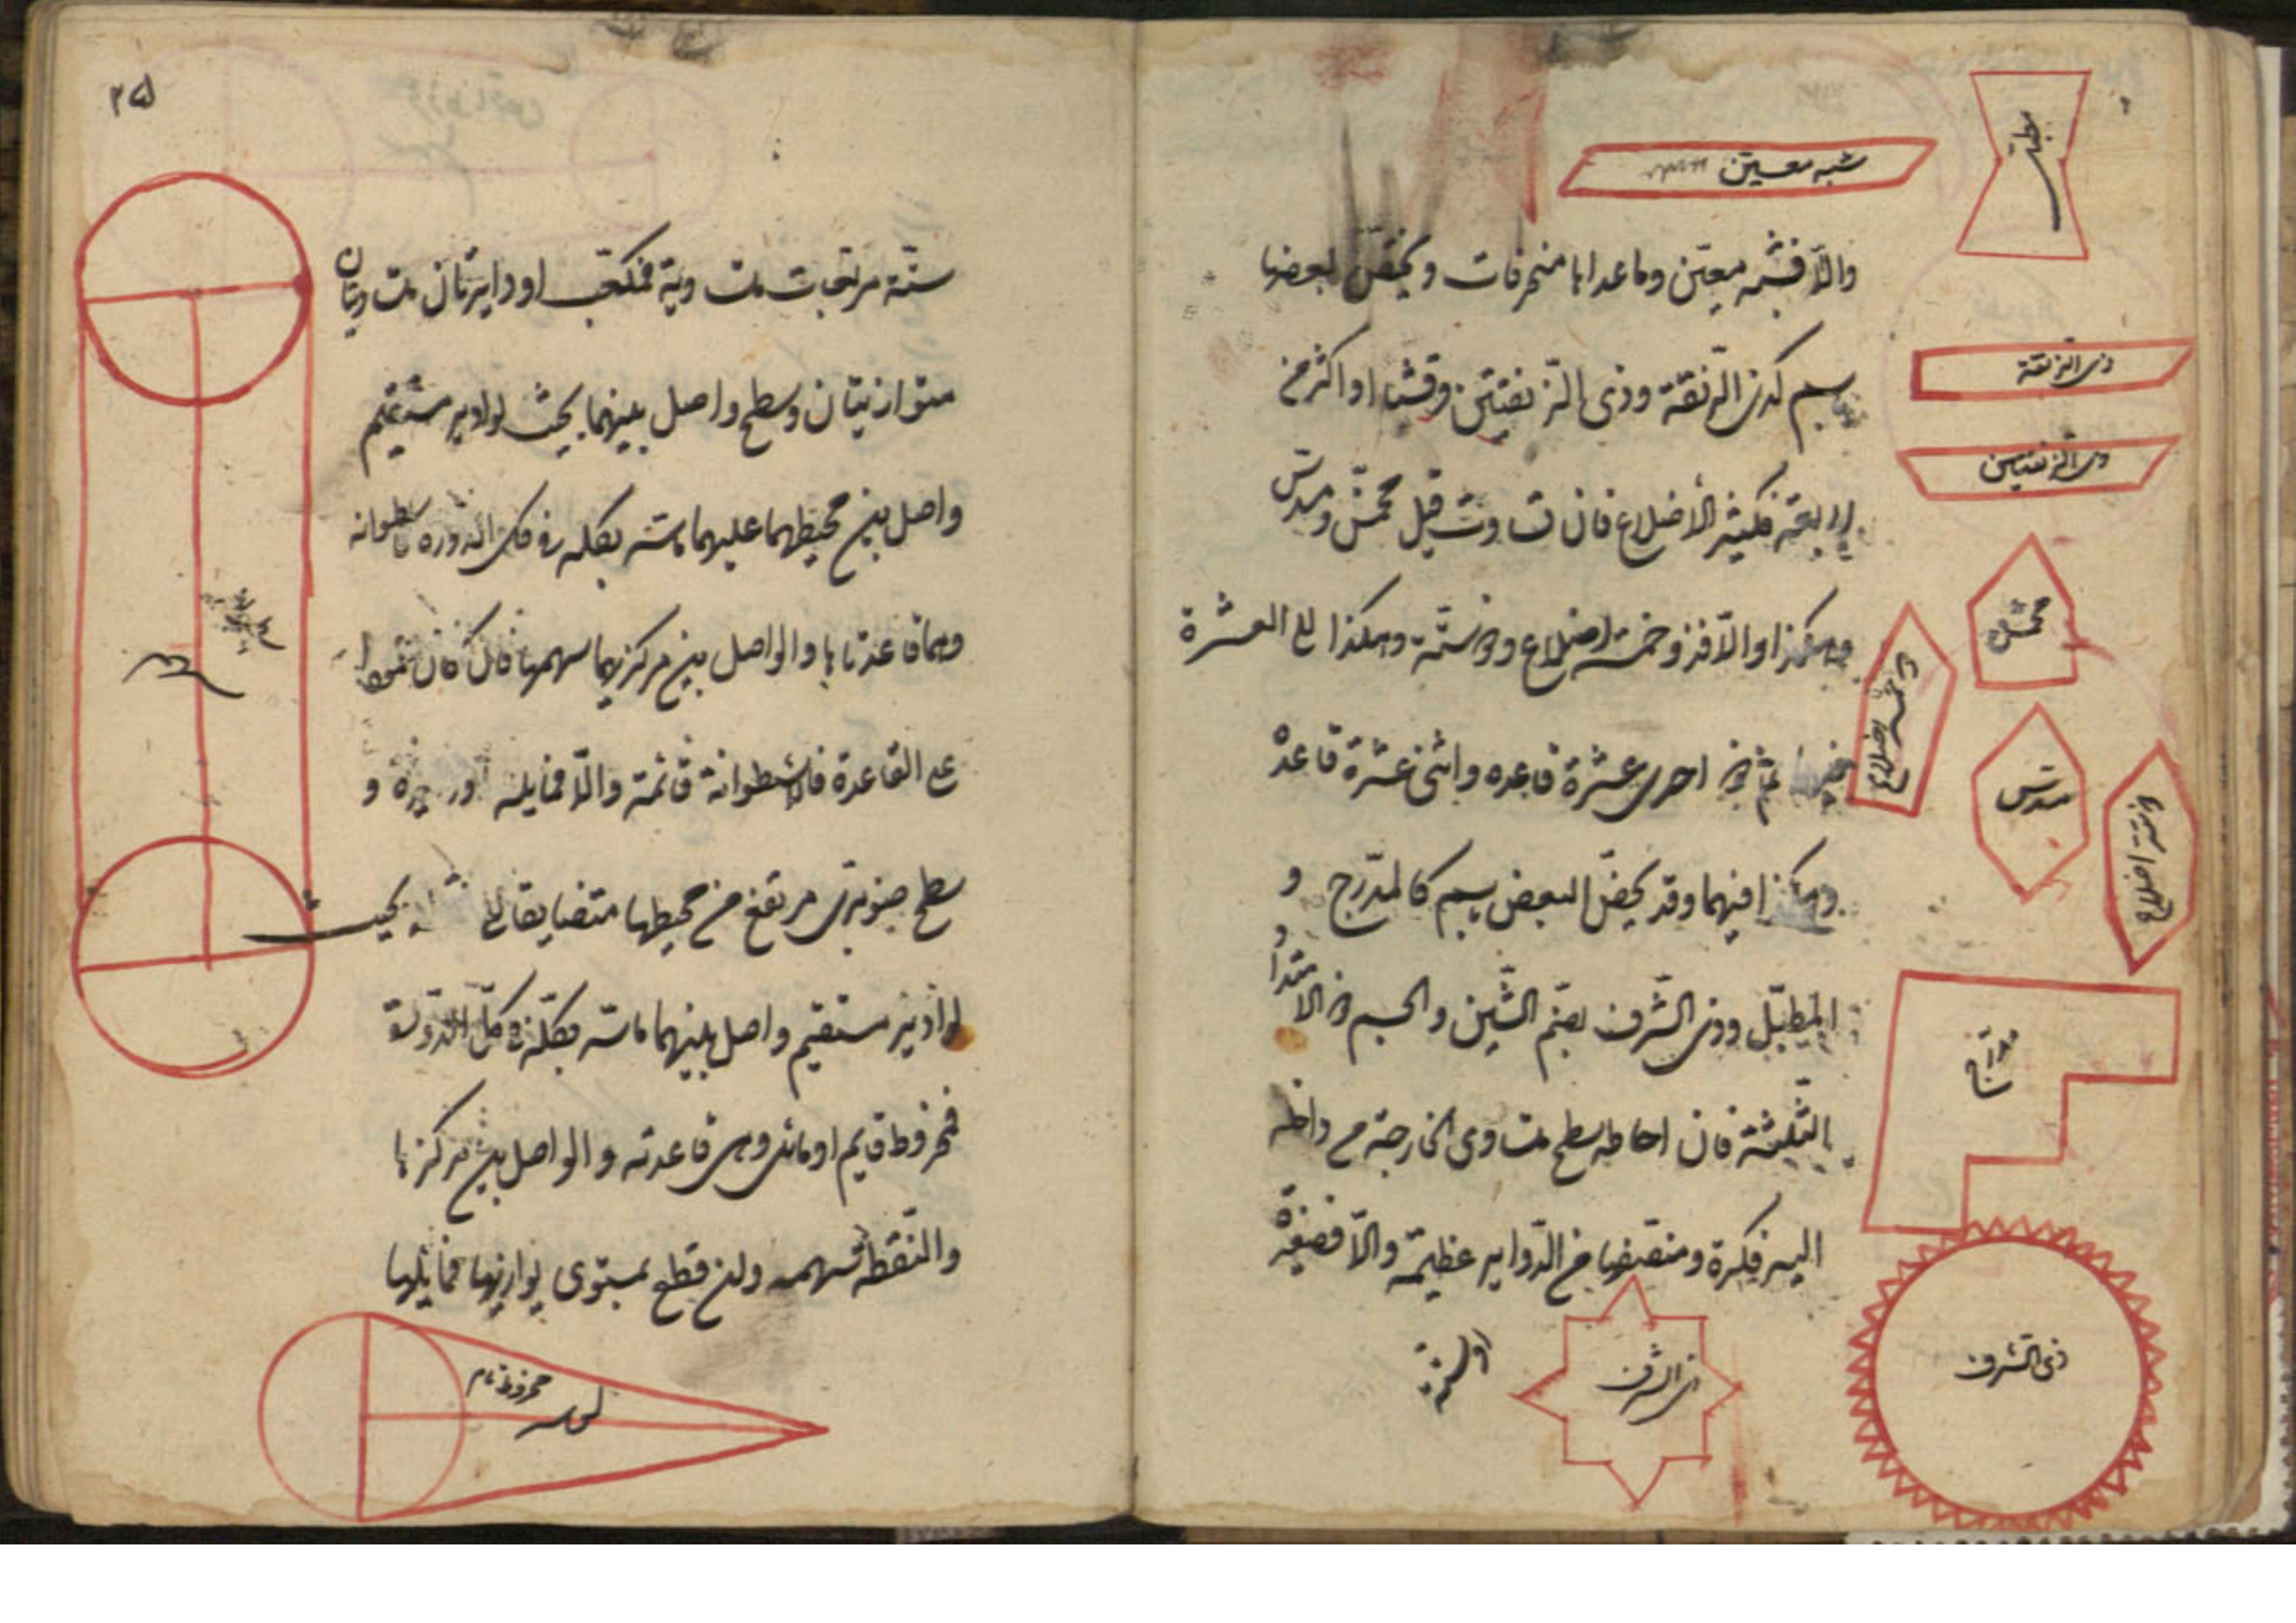 شبه معين
مطبل
والا فشبه معين وما عداها منحرفات ويختص بعضها
ذى الزنقة
باسم كذى الزنقة وذى الزنقتين وقثا او اكثر من
ذى الزنقتين
اربعة فكثير الأضلاع فان تساوت قيل مخمس ومسدس
مخمس
وهكذا والا فذو خمسة اضلاع وذو ستة وهكذا الى العشرة
ذو خمسة اضلاع
فيهما ثم ذو احدى عشرة قاعده واثنى عشرة قاعدة
مسدس
وهكذا فيهما وقد يخص البعض باسم كالمدرج و
المطبل وذى الشرف بضم الشين والجسم ذو الامتدادات
مدرج
الثلثة فان احاطه سطح متساوى الخارجة من داخله
اليه فكرة ومنصفها من الدواير عظيمة والا فصغيرة
ذى الشرف
ذى الشرف
او ستة
٢٥
ستة مربعات متساوية فمكعب او دايرتان متساويتان
متوازيتان وسطح واصل بينهما بحيث لو ادير مستقيم
واصل بين محيطهما عليهما ماسه بكله فى كل الدورة فاسطوانة
وهما قاعدتاها والواصل بين مركزيهما سهمها فان كان عمودا
على القاعدة فالاسطوانة قائمة والا فمايلة او دايرة و
سطح صنوبرى مرتفع من محيطها متضايقا الى نقطة بحيث
لو ادير مستقيم واصل بينهما ماسه بكله فى كل الدورة
فمخروط قايم او مائل وهى قاعدته والواصل بين مركزها
والنقطة سهمه وان قطع بمستوى يوازيها فما يليها
مخروط تام